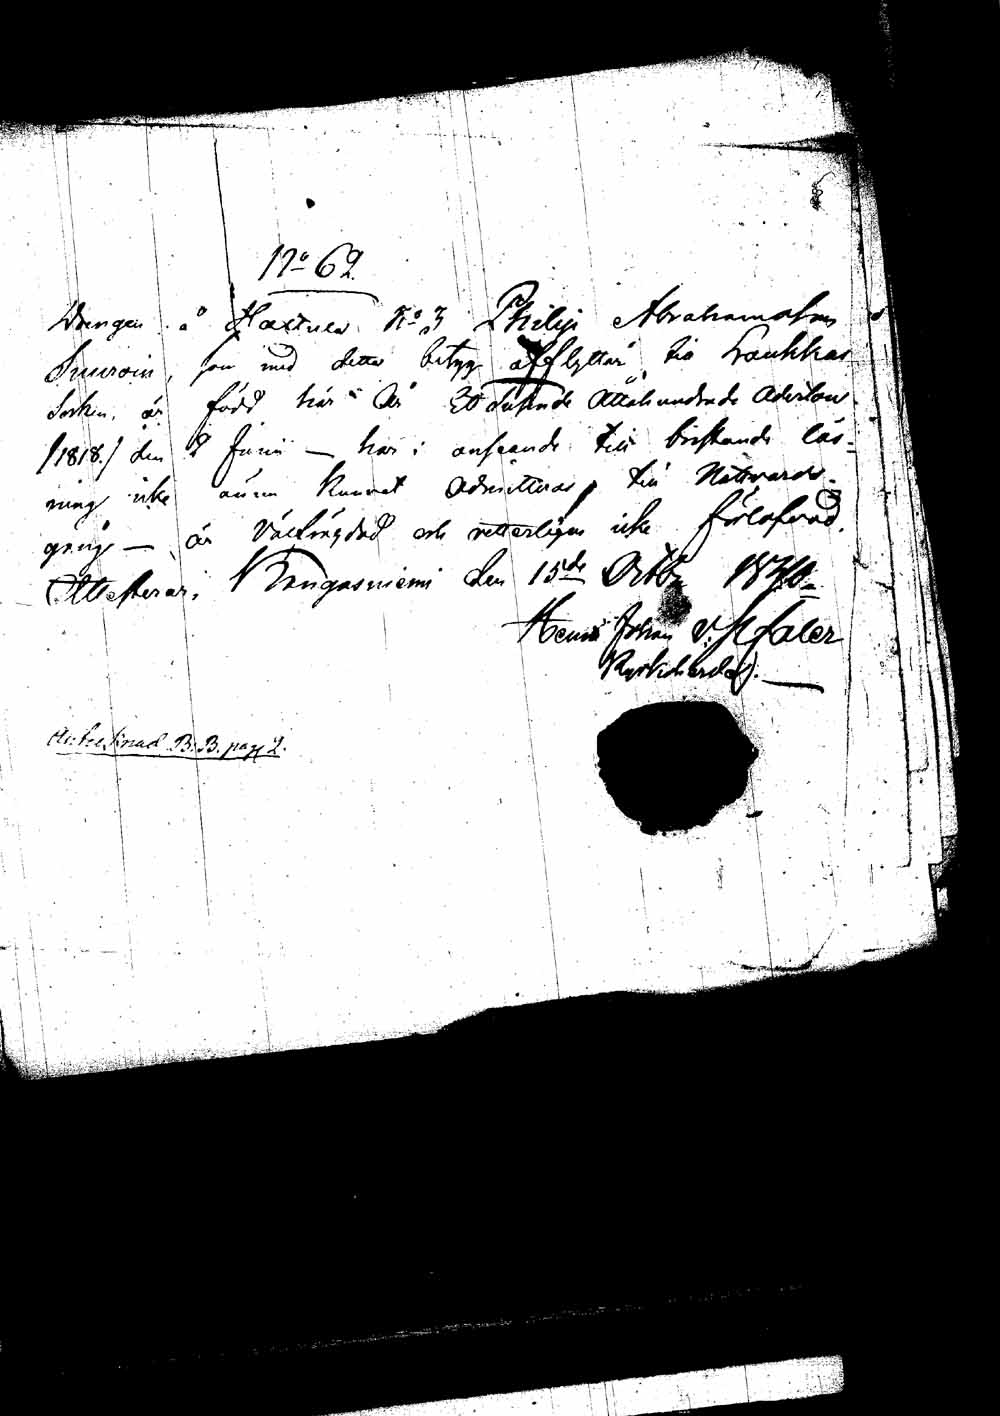 No 62.
Drengen å Hartula No 3 Philip Abrahamsson
som med detta betyg afflyttar till Laukkas
Socken, är född här År Ett Tusende Åttahundrade Aderton
/1818./ den 2 Junii — har i anseende till bristande läs-
ning icke ännu kunnat admitteras till Nattvards-
gång — är välfrägdad och vetterligen icke förlofvad.
Attesterar, Kangasniemi den 15de Octb.
Henric Johan
Kyrkoherde.
B.B. pag 2.